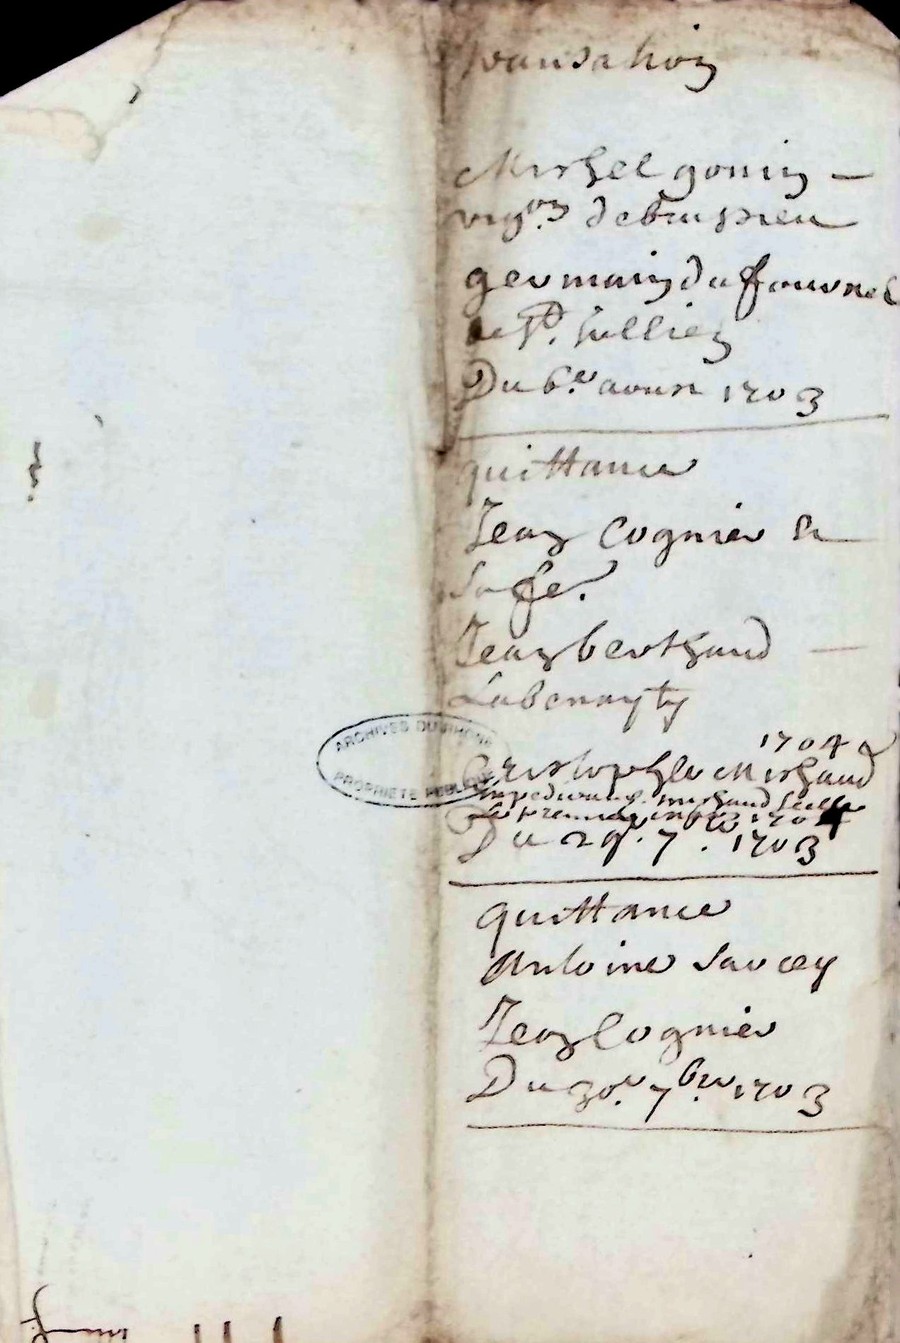 Transation
Michel gonin
vig.on debrussieu
germain du fournel
de St. Jullien
Du 6.e aoust 1703
quittance
Jean Cognier &
Safe.
Jean berthaud
Labenayty
1704
Cristophle Michaud
Expedié michaud
le premier 1704
Du 29. 7. 1703
quittance
Antoine Saucey
Jean Cognier
Du 30.e 7bre 1703
ARCHIVES DU RHONE
PROPRIETE PUBLIQUE